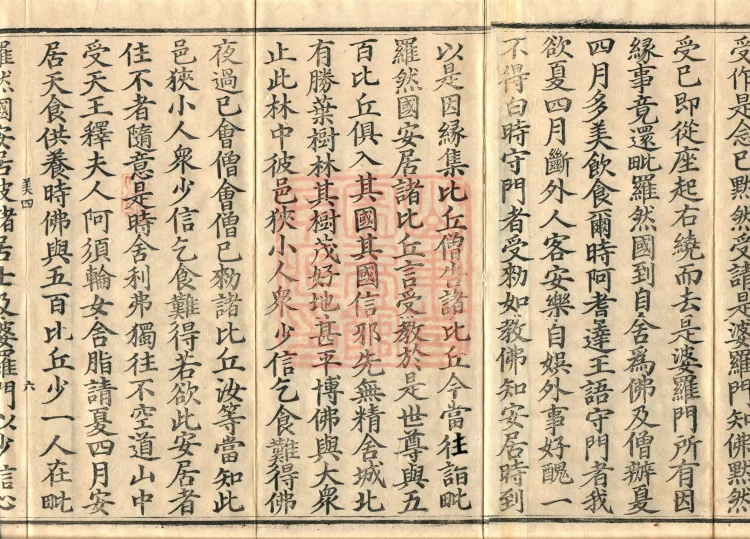 受作是念已黙然受請是婆羅門知佛黙然
受已即從座起右繞而去是婆羅門所有因
緣事竟還毗羅然國到自舍爲佛及僧辦夏
四月多美飲食爾時阿耆達王語守門者我
欲夏四月斷外人客安樂自娛外事好醜一
不得白時守門者受勑如教佛知安居時到
以是因緣集比丘僧告諸比丘今當往詣毗
羅然國安居諸比丘言受教於是世尊與五
百比丘俱入其國其國信邪先無精舍城北
有勝葉樹林其樹茂好地甚平博佛與大衆
止此林中彼邑狹小人衆少信乞食難得佛
夜過已會僧會僧已勑諸比丘汝等當知此
邑狹小人衆少信乞食難得若欲此安居者
住不者隨意是時舍利弗獨往不空道山中
受天王釋夫人阿須輪女舍脂請夏四月安
居天食供養時佛與五百比丘少一人在毗
美四 六
羅然國安居彼諸居士及婆羅門以少信心